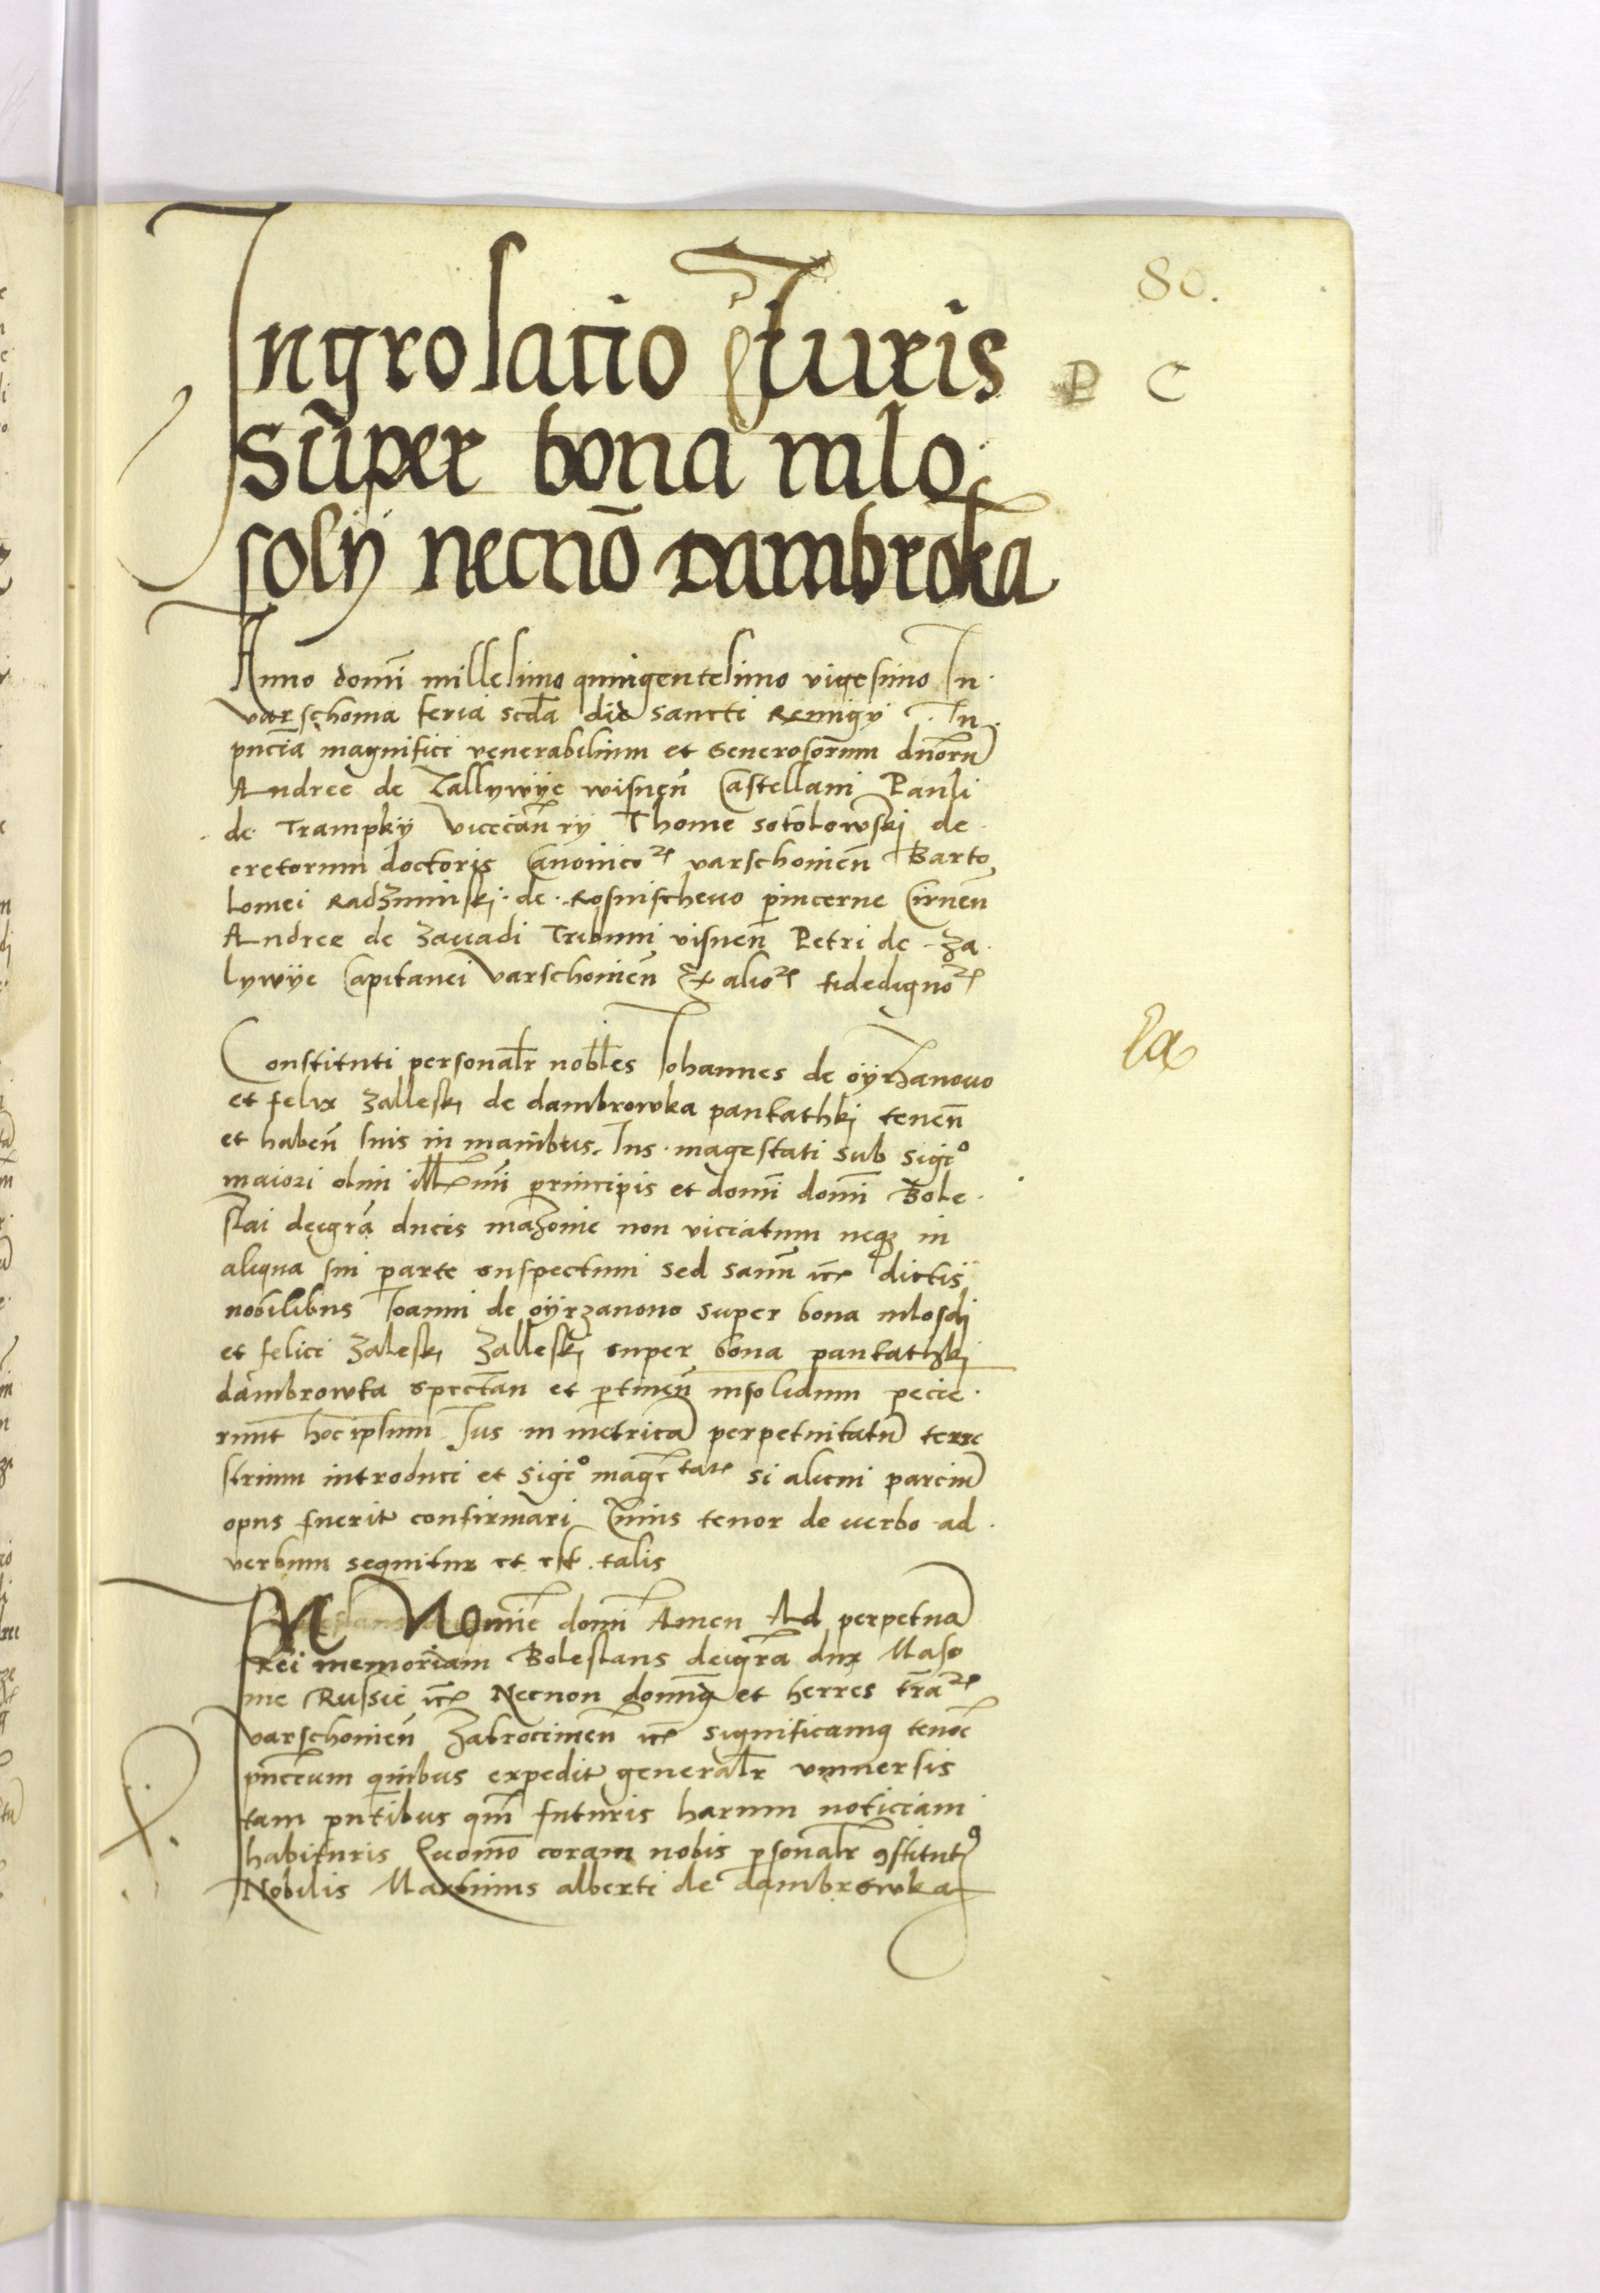 80.
Ingrosacio Juris
P C
sup̃er bona mlo
soly necnō dambroka
Anno domi̅ millesimo quingentesimo vigesimo In
varschouia feria scd̅a die sancti Remigÿ . In
pn̅cia magnifici venerabilium et Generosorum dn̅orũ
Andree de Zallywÿe wisnen̅ Castellani Pauli
de Trampkÿ vicecan̅rÿ Thome sokolowski de
cretorum doctoris Canonicoꝝ varschouien̅ Barto
lomei Radzminskj de Rosnischeuo pincerne Cirnen̅
Andree de Zauadi Tribuni visnen̅ Petri de Za
lywÿe Capitanei varschouien̅ Et alioꝝ fidedignoꝝ
Constituti personal̅r nobl̅es Johannes de oÿrzanouo
et felix Zalleskj de dambrowka pankathkj tenen̅
et haben̅ suis in manibus Jus magestati sub sigio
maiori olim ill̅mi principis et domi̅ domi̅ Bole
slai deigrã ducis mazouie non viciatum neqz in
aliqua sui parte suspectum sed sanũ ic̅ dictis
nobilibus Joanni de oÿrzanouo super bona mlosdj
et felici Zaleskj Zalleskj super bona pankathkj
dambrowka spectan̅ et ptinen̅ insolidum pecie
runt hoc ipsum Jus in metricã perpetuitatũ terre
strium introduci et sigio mag̅tatꝭ si alicui parciũ
opus fuerit confirmari Cuius tenor de uerbo ad
verbum sequitur et est talis
IN Nomi̅e domi̅ Amen Ad perpetuã
Rei memoriam Boleslaus deigrã dux Maso
uie Russie ic̅ Necnon domi̅qz et herres tr̅aꝝ
varschouien̅ Zakrocimen̅ ic̅ significamꝰ teno̅e
pn̅cium quibus expedit general̅r vniuersis
tam pn̅tibus qm̅ futuris harum noticiam
habituris Quomo̅ coram nobis psonal̅r ꝯstitutꝰ
Nobilis Martinus alberti de dambrowka